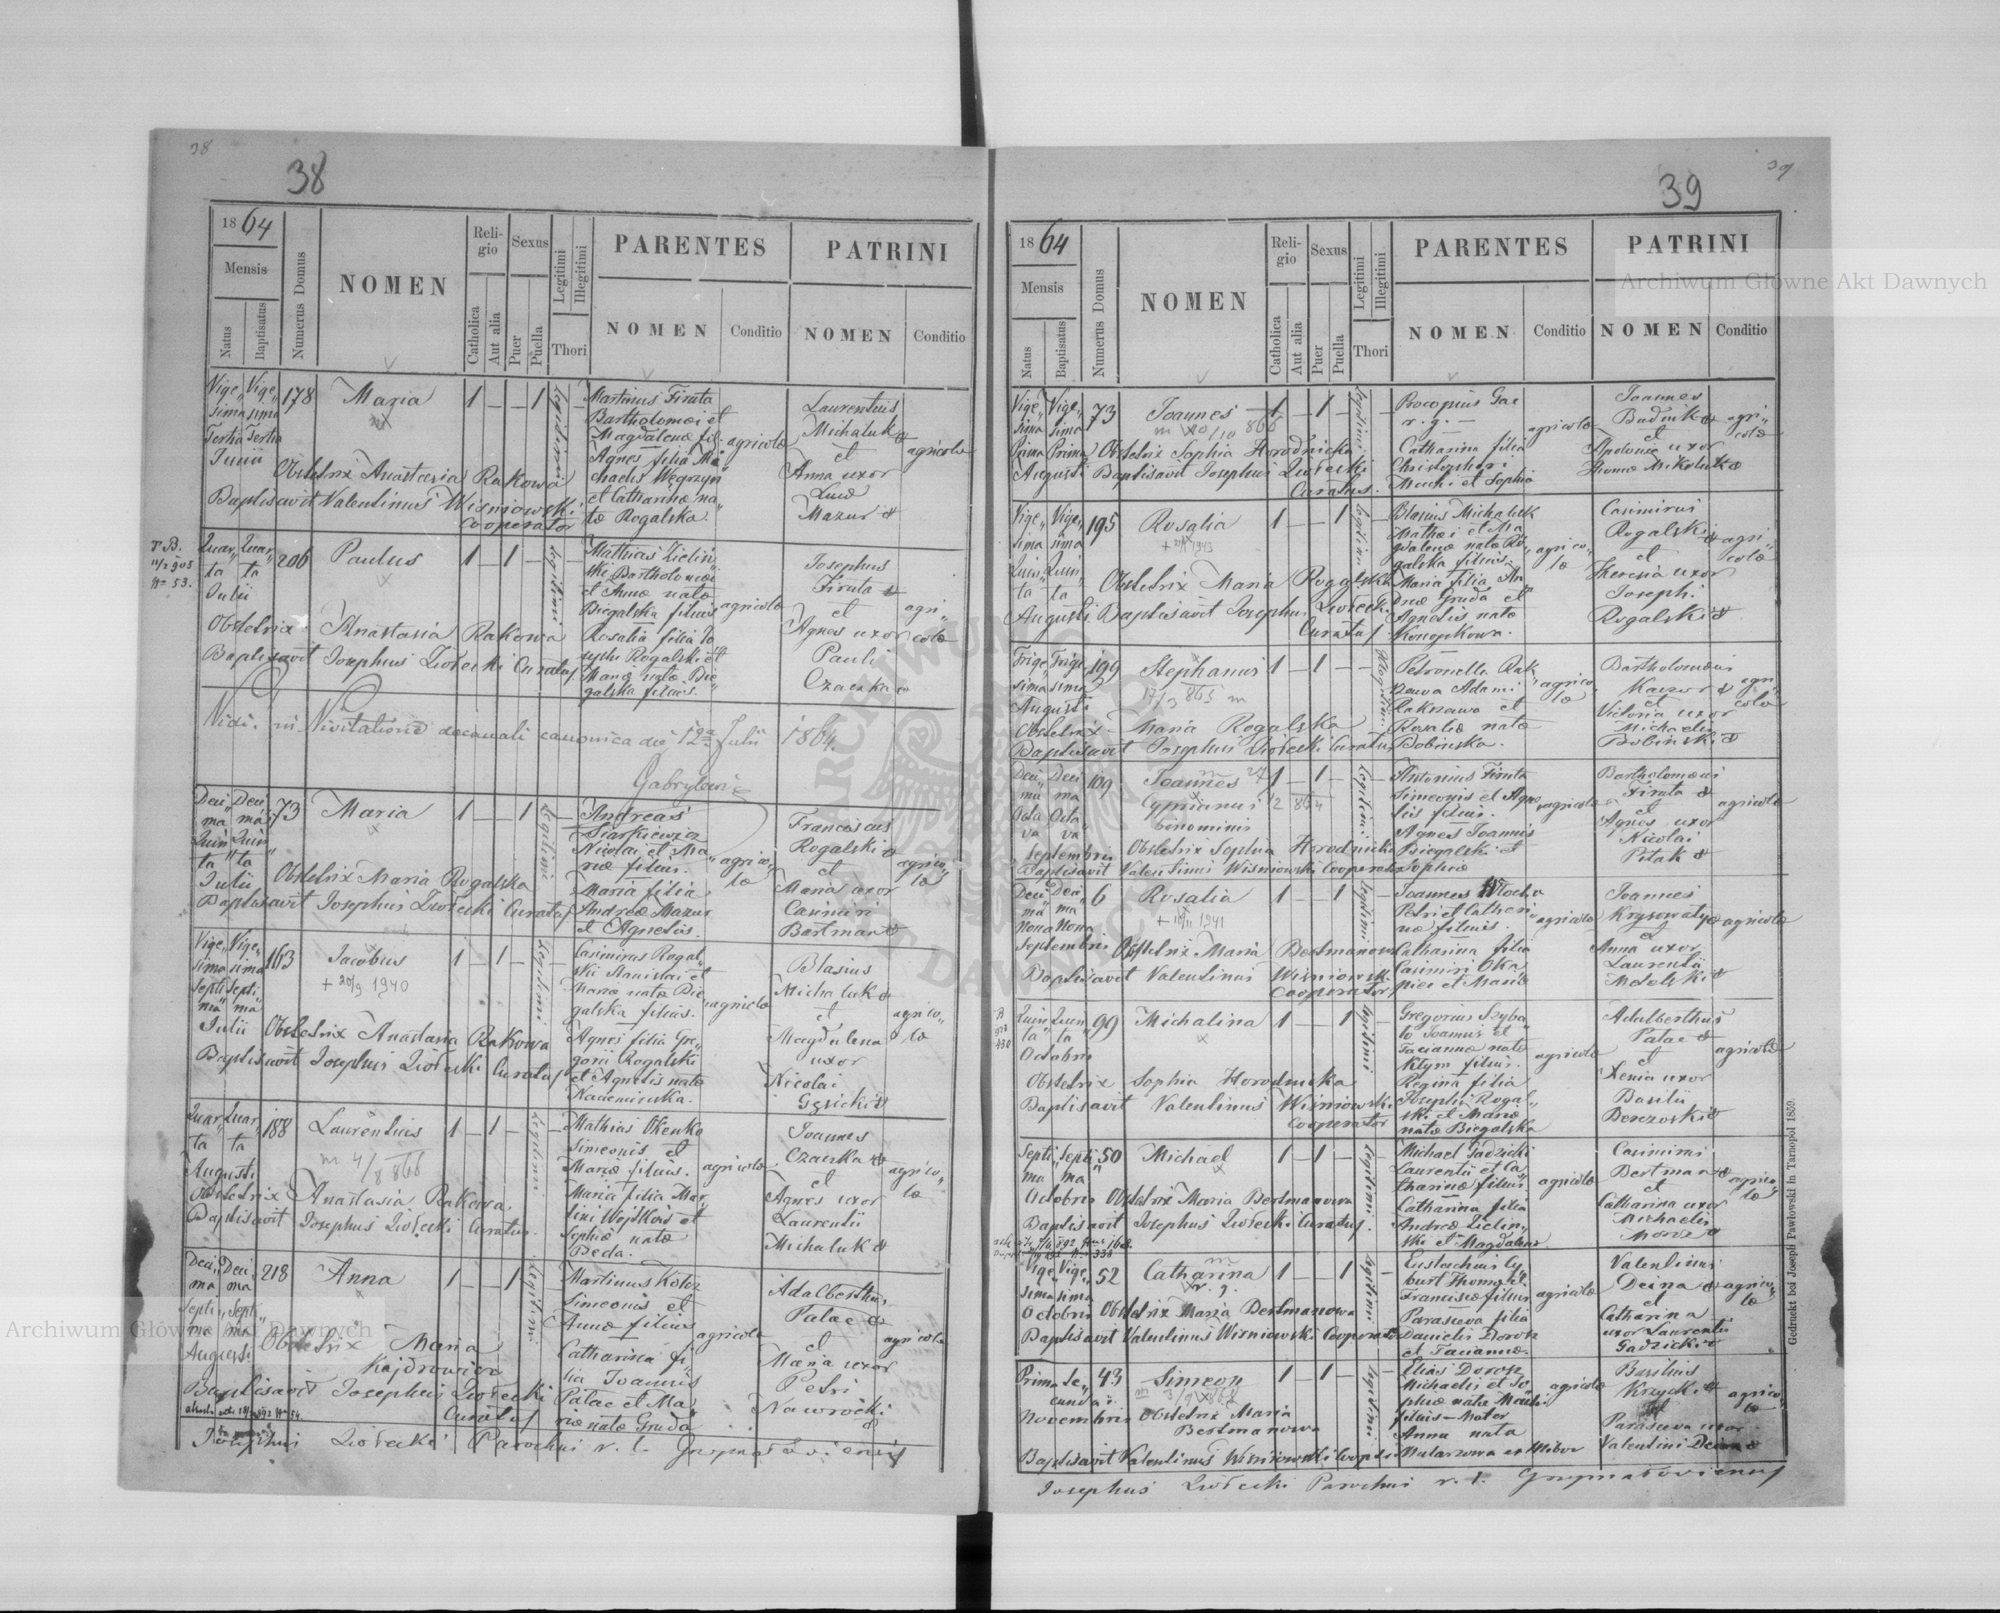 38
38
1864
Mensis
Natus
Baptisatus
Numerus Domus
NOMEN
Reli-
gio
Catholica
Aut alia
Sexus
Puer
Puella
Legitimi
Illegitimi
Thori
PARENTES
NOMEN
Conditio
PATRINI
NOMEN
Conditio
Vige„ Vige„
sima sima
Tertia Tertia
Junii
178
Maria
1 – – 1
Legitimi
Martinus Firuta
Bartholomæi et
Magdalenæ fil.
Agnes filia Mi„
chaelis Węgrzyn
et Catharinæ na„
tæ Rogalska.
agricolæ
Laurentius
Michaluk &
et
Anna uxor
Lucæ
Mazur &
agricolæ
Obstetrix Anastasia Rakowa
Baptisavit Valentinus Wiśniowski
Cooperator
Quar„ Quar„
ta ta
Julii
206
Paulus
1 – 1 –
Legitimi
Mathias Zieliń„
ski Bartholomæi
et Annæ natæ
Biegalska filius
Rosalia filia Jo
sephi Rogalski et
Mariæ natæ Bie„
galska filius.
agricolæ
Josephus
Firuta &
et
Agnes uxor
Pauli
Czaczka
agri„
colæ
Obstetrix Anastasia Rakowa
Baptisavit Josephus Ziołecki Curatus
Vidi in Visitatione decanali canonica die 12a Julii 1864.
Deci„ Deci„
ma ma
Quin„ Quin„
ta ta
Julii
73
Maria
1 – – 1
Legitimi
Andreas
Siarkiewicz
Nicolai et Ma„
riæ filius.
Maria filia
Andreæ Mazur
et Agnetis.
agrico„
læ
Franciscus
Rogalski &
et
Maria uxor
Casimiri
Bartman &
agrico„
læ
Obstetrix Maria Rogalska
Baptisavit Josephus Ziołecki Curatus
Vige„ Vige„
sima sima
Septi Septi
ma ma
Julii
163
Jacobus
+ 20/9 1940
1 – 1 –
Legitimi
Casimirus Rogal„
ski
Mariæ natæ Bie
galska filius.
Agnes filia Gre„
gorii Rogalski
et Agnetis natæ
Kaczmirska.
agricolæ
Blasius
Michaluk &
et
Magdalena
uxor
Nicolai
Gęsicki &
agrico„
læ
Obstetrix Anastasia Rakowa
Baptisavit Josephus Ziołecki Curatus
Quar„ Quar„
ta ta
Augusti
188
Laurentius
m 4/8 866
1 – 1 –
Legitimi
Mathias Okenko
Simeonis et
Mariæ filius.
Maria filia Mar„
tini Wojtków et
Sophiæ natæ
Deda.
agricolæ
Joannes
Czaczka &
et
Agnes uxor
Laurentii
Michaluk &
agrico„
læ
Obstetrix Anastasia Rakowa
Baptisavit Josephus Ziołecki Curatus.
Deci„ Deci„
ma ma
Septi„ Septi„
ma ma
Augusti
218
Anna
1 – – 1
Legitimi
Martinus Kołcz
Simeonis et
Annæ filius
Catharina fi„
lia Joannis
Pałac et Ma„
riæ natæ Gruda
agricolæ
Adalbertus
Pałac &
et
Maria uxor
Petri
Nawrocki
&
agricolæ
Obstetrix Maria
Baptisavit Josephus Ziołecki
Curatus
Josephus Ziołecki Parochus r. l. Grzymałoviensis
39
39
1864
Mensis
Natus
Baptisatus
Numerus Domus
NOMEN
Reli-
gio
Catholica
Aut alia
Sexus
Puer
Puella
Legitimi
Illegitimi
Thori
PARENTES
NOMEN
Conditio
PATRINI
NOMEN
Conditio
Vige„ Vige„
sima sima
Prima Prima
Augusti
73
Joannes
1 – 1 –
Legitimi
Procopius Gac
r. g. –
Catharina filia
Christophori
Mucki et Sophiæ
agricolæ
Joannes
Budnik &
et
Apolonia uxor
Thomæ Mikołuk &
agri„
colæ
Obstetrix Sophia Horodnicka
Baptisavit Josephus Ziołecki
Curatus.
Vige„ Vige„
sima sima
Quin„ Quin„
ta ta
Augusti
195
Rosalia
1943
1 – – 1
Legitimi
Blasius Michaluk
Mathæi et Ma
gdalenæ natæ Ro„
galska filius.
Maria filia An„
dreæ Gruda et
Agnetis natæ
Konopkowa.
agrico„
læ
Casimirus
Rogalski &
et
Theresia uxor
Josephi
Rogalski &
agri„
colæ
Obstetrix Maria Rogalska
Baptisavit Josephus Ziołecki
Curatus
Trige„ Trige„
sima sima
Augusti
199
Stephanus
17/3 865 m
1 – 1 –
Illegitimi
Petronella Rak„
Adami
et
Rosaliæ natæ
Bobinska.
agrico„
læ
Bartholomæus
Mazur &
et
Victoria uxor
Michaelis
Bobinski &
agri„
colæ
Obstetrix Maria Rogalska
Baptisavit Josephus Ziołecki Curatus
Deci„ Deci
ma ma
Octa Octa
va va
Septembris
109
Joannes
Cyprianus
binominis
1 – 1 –
Legitimi
Antonius Firuta
Simeonis et Agne„
tis filius.
Agnes Joannis
Biegalski et
Sophiæ
agricolæ
Bartholomæus
Firuta &
et
Agnes uxor
Nicolai
Ptak &
agricolæ
Obstetrix Sophia Horodnicka
Baptisavit Valentinus Wiśniowski Cooperator
Deci Deci
ma ma
Nona Nona
Septembris
6
Rosalia
1941
1 – – 1
Legitimi
Joannes Włocha
Petri et Cathari
næ filius.
Catharina filia
Casimiri Oka„
piec et Mariæ
agricolæ
Joannes
Krysowaty &
et
Anna uxor
Laurentii
agricolæ
Obstetrix Maria Bertmanowa
Baptisavit Valentinus Wiśniowski
Cooperator
Quin„ Quin„
ta ta
Octobris
99
Michalina
1 – – 1
Legitimi
Gregorius Szyba„
ło Joannis et
Tacianæ natæ
Kłym filius.
Regina filia
Josephi Rogal„
ski et Mariæ
natæ Biegalska
agricolæ
Adalbertus
Pałac &
et
Xenia uxor
Basilii
Berezoski &
agricolæ
Obstetrix Sophia Horodnicka
Baptisavit Valentinus Wiśniowski
Cooperator
Septi„ Septi„
ma ma
Octobris
50
Michael
1 – 1 –
Legitimi
Michael Gadzicki
Laurentii et Ca„
tharinæ filius
Catharina filia
Andreæ Zieliń„
ski et Magdalenæ
agricolæ
Casimirus
Bertman &
et
Catharina uxor
Michaelis
agrico„
læ
Obstetrix Maria Bertmanowa
Baptisavit Josephus Ziołecki Curatus.
Vige„ Vige„
sima sima
Octobris
52
Catharina
r. g.
1 – – 1
Legitimi
Eustachius Cy„
burt Thomæ et
Franciscæ filius
Parasceva filia
Danielis Dorosz
et Tacianæ.
agricolæ
Valentinus
Deina &
et
Catharina
uxor Laurentii
Gadzicki &
agrico„
læ
Obstetrix Maria Bertmanowa
Baptisavit Valentinus Wiśniowski Cooperator
Prima Se„
cunda
Novembris
43
Simeon
1 – 1 –
Legitimi
Elias Dorosz
Michaelis et So
phiæ natæ
filius – Mater
Anna nata
agricolæ
Basilius
Krzycki &
et
Parasceva uxor
Valentini Deina &
agrico„
læ
Obstetrix Maria
Bertmanowa
Baptisavit Valentinus Wiśniowski
Josephus Ziołecki Parochus r. l. Grzymałoviensis
Gedruckt bei Joseph Pawłowski in Tarnopol 1859.
Archiwum Główne Akt Dawnych
Archiwum Główne Akt Dawnych
ARCHIWUM GŁÓWNE AKT DAWNYCH